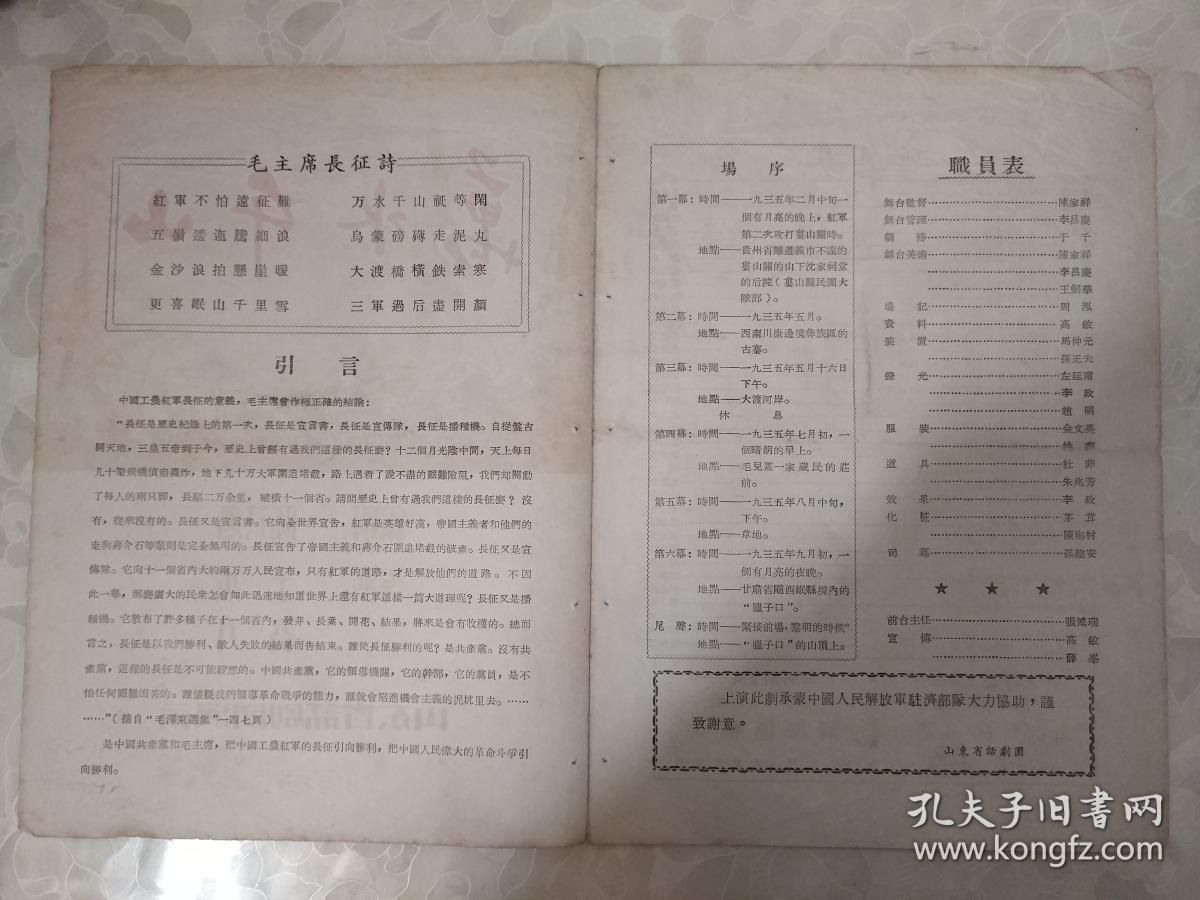 毛主席長征詩
紅軍不怕遠征難 万水千山祇等閑
五嶺逶迤騰細浪 烏蒙磅礴走泥丸
金沙浪拍懸崖暖 大渡橋橫鉄索寒
更喜岷山千里雪 三軍過后盡開顏
引言
中國工農紅軍長征的意義，毛主席曾作極正確的結論：
“長征是歷史紀錄上的第一次，長征是宣言書，長征是宣傳隊，長征是播種機。自從盤古
開天地，三皇五帝到于今，歷史上曾經有過我們這樣的長征麼？十二個月光陰中間，天上每日
几十架飛機偵察轟炸，地下几十万大軍圍追堵截，路上遇着了說不盡的艱難險阻，我們却開動
了每人的兩只脚，長驅二万余里，縱橫十一個省。請問歷史上曾有過我們這樣的長征麼？沒
有，從來沒有的。長征又是宣言書。它向全世界宣告，紅軍是英雄好漢，帝國主義者和他們的
走狗蔣介石等輩則是完全無用的。長征宣告了帝國主義和蔣介石圍追堵截的破產。長征又是宣
傳隊。它向十一個省內大約兩万万人民宣布，只有紅軍的道路，才是解放他們的道路。不因
此一舉，那麼廣大的民衆怎會如此迅速地知道世界上還有紅軍這樣一篇大道理呢？長征又是播
種機。它散布了許多種子在十一個省內，發芽、長葉、開花、結果，將來是會有收穫的。總而
言之，長征是以我們勝利、敵人失敗的結果而告結束。誰使長征勝利的呢？是共產黨。沒有共
產黨，這樣的長征是不可能設想的。中國共產黨，它的領導機關，它的幹部，它的黨員，是不
怕任何艱難困苦的。誰懷疑我們領導革命戰爭的能力，誰就會陷進機會主義的泥坑里去。……
……”（摘自“毛澤東選集”一四七頁）
是中國共產黨和毛主席，把中國工農紅軍的長征引向勝利，把中國人民偉大的革命斗爭引
向勝利。
場序
第一幕：時間——一九三五年二月中旬一
個有月亮的晚上，紅軍
第二次攻打婁山關時。
地點——貴州省離遵義市不遠的
婁山關的山下沈家祠堂
的后院（婁山關民團大
隊部）。
第二幕：時間——一九三五年五月。
地點——西南川康邊境彝族區的
古寨。
第三幕：時間——一九三五年五月十六日
下午。
地點——大渡河岸。
休息
第四幕：時間——一九三五年七月初，一
個晴朗的早上。
地點——毛兒蓋一家藏民的莊
前。
第五幕：時間——一九三五年八月中旬，
下午。
地點——草地。
第六幕：時間——一九三五年九月初，一
個有月亮的夜晚。
地點——甘肅省隴西岷縣境內的
“臘子口”。
尾聲：時間——緊接前場，黎明的時候。
地點——“臘子口”的山頂上。
職員表
舞台監督……陳家祥
舞台管理……李昌慶
劇務……于千
舞台美術……陳家祥
……李昌慶
……王劍華
場記……周泓
資料……高敏
裝置……馬仲元
……孫正夫
燈光……左廷甫
……李政
……趙明
服裝……金文英
……姚燕
道具……杜非
……朱兆芳
效果……李政
化粧……茅茸
……陳梅村
司幕……孫龍安
★ ★ ★
前台主任……張鴻瑞
宣傳……高敏
……薛峯
上演此劇承蒙中國人民解放軍駐濟部隊大力協助，謹
致謝意。
山東省話劇團
孔夫子旧书网
www.kongfz.com